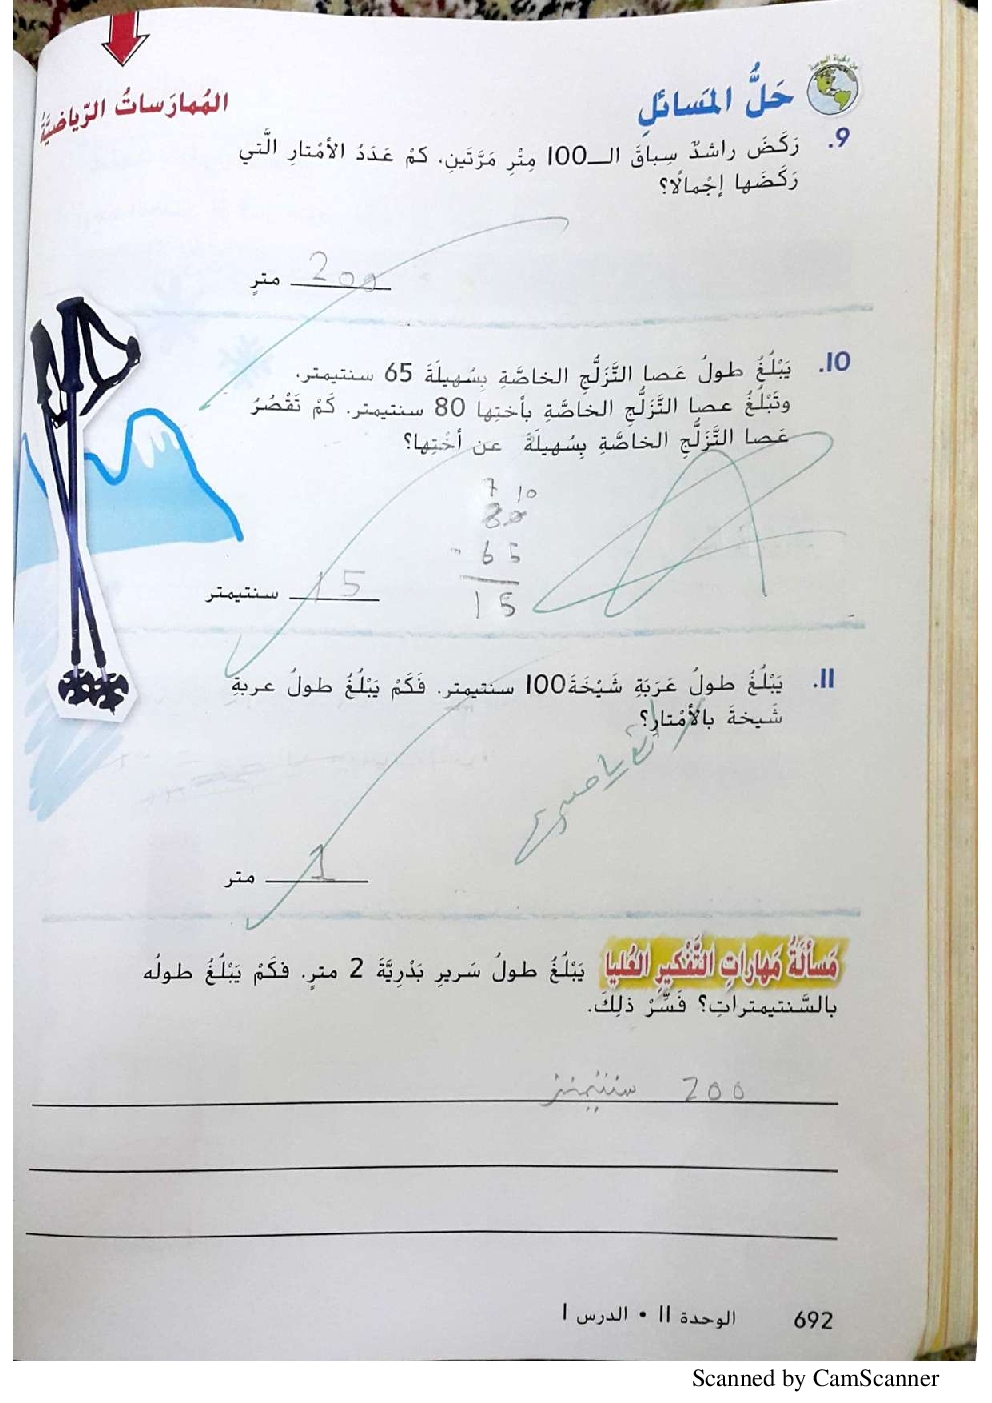 من الحياة اليومية
حَلُّ المَسائلِ
المُمارَساتُ الرّياضيَّةُ
9. رَكَضَ راشدٌ سِباقَ الــ100 مِتْرِ مَرَّتَينِ. كمْ عَدَدُ الأمْتارِ الَّتي
رَكَضَها إجْمالًا؟
200 مترٍ
10. يَبْلُغُ طولُ عَصا التَّزَلُّجِ الخاصَّةِ بِسُهيلَةَ 65 سنتيمتر،
وتَبْلُغُ عصا التَّزَلُّجِ الخاصَّةِ بأختِها 80 سنتيمتر. كَمْ تَقْصُرُ
عَصا التَّزَلُّجِ الخاصَّةِ بِسُهيلَةَ عن أخْتِها؟
7 10
80
- 65
15
15 سنتيمتر
11. يَبْلُغُ طولُ عَرَبَةِ شَيْخَةَ 100 سنتيمتر. فَكَمْ يَبْلُغُ طولُ عربةِ
شَيخةَ بالأمْتارِ؟
1 متر
مَسألَةُ مَهاراتِ التَّفْكيرِ العُليا يَبْلُغُ طولُ سَريرِ بَدْرِيَّةَ 2 مترٍ. فكَمْ يَبْلُغُ طولُه
بالسَّنتيمتراتِ؟ فَسِّرْ ذلِكَ.
200 سنتيمتر
692 الوحدة 11 • الدرس 1
Scanned by CamScanner